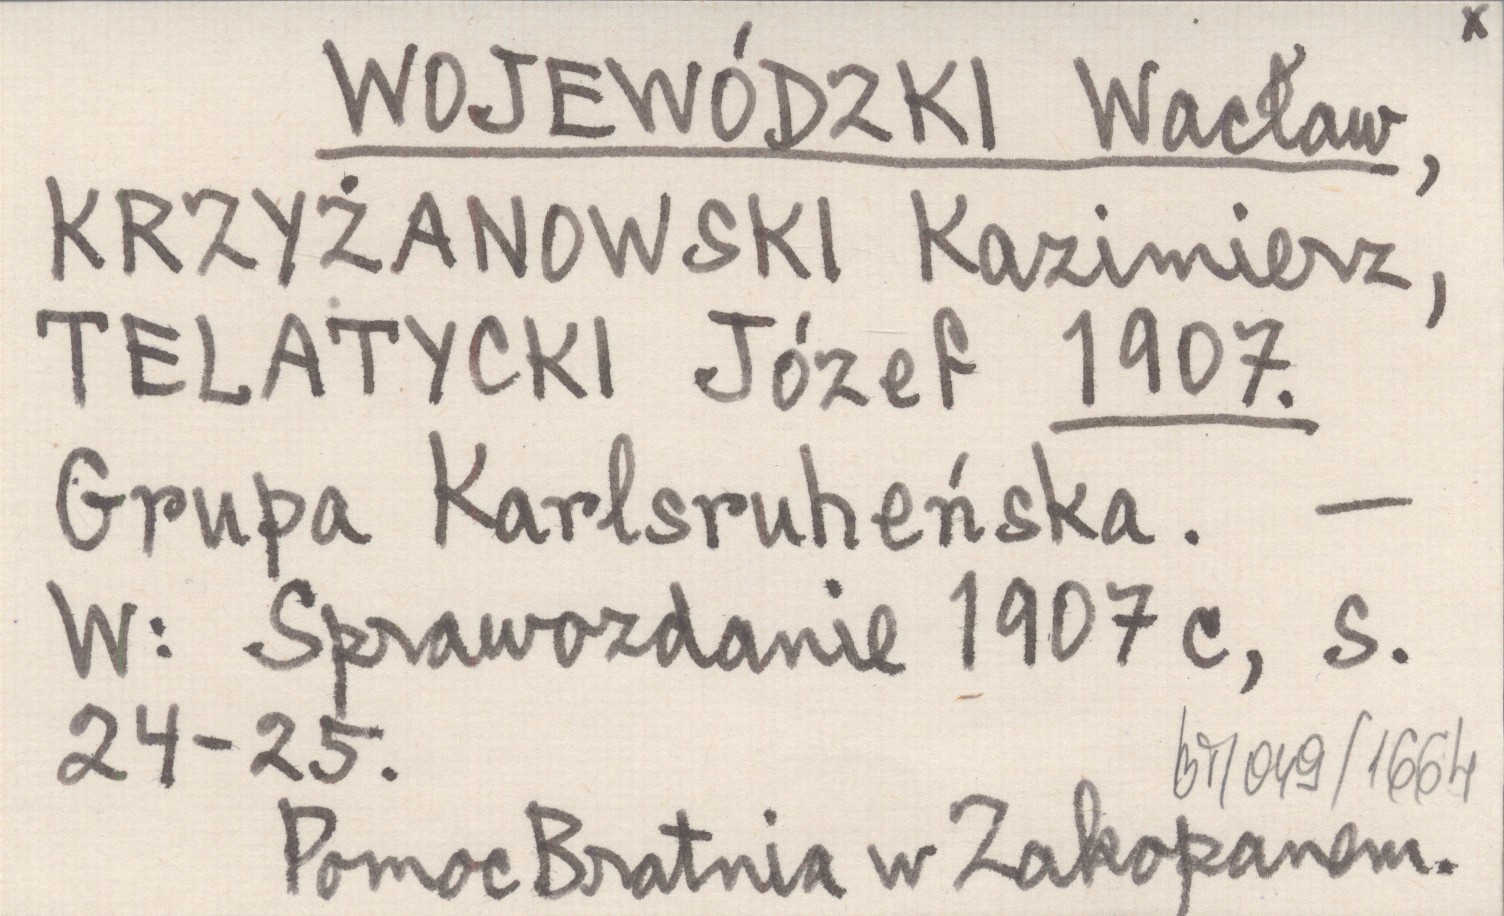 x
WOJEWÓDZKI Wacław,
KRZYŻANOWSKI Kazimierz,
TELATYCKI Józef 1907.
Grupa Karlsruheńska. —
W: Sprawozdanie 1907 c, s.
24-25.
/049/1664
Pomoc Bratnia w Zakopanem.